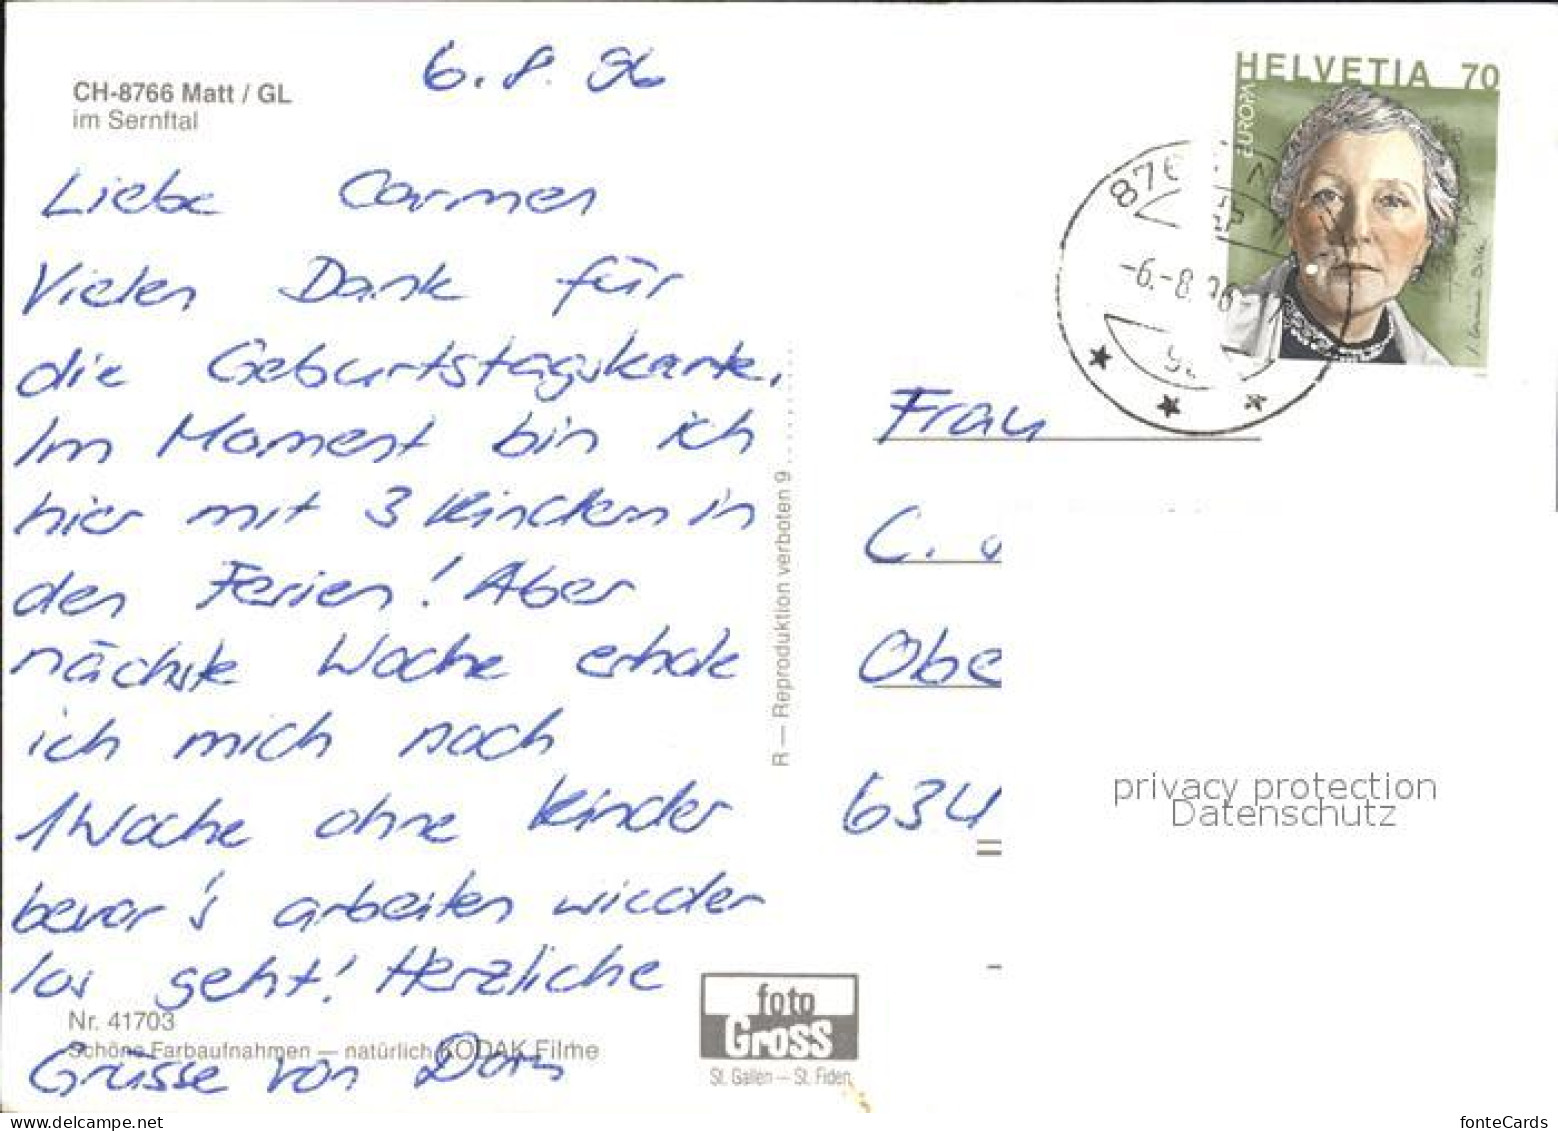 6.8.96
CH-8766 Matt / GL
im Sernftal
Liebe Carmen
Vielen Dank für
die Geburtstagskarte.
Im Moment bin ich
hier mit 3 Kindern in
den Ferien! Aber
nächste Woche erhole
ich mich noch
1 Woche ohne Kinder
bevor's arbeiten wieder
los geht! Herzliche
Grüsse von
Nr. 41703
Schöne Farbaufnahmen — natürlich KODAK Filme
R — Reproduktion verboten 9
foto
Gross
St. Gallen — St. Fiden
HELVETIA 70
EUROPA
876
-6.-8.96-
Frau
C.
Obe
634
privacy protection
Datenschutz
fonteCards